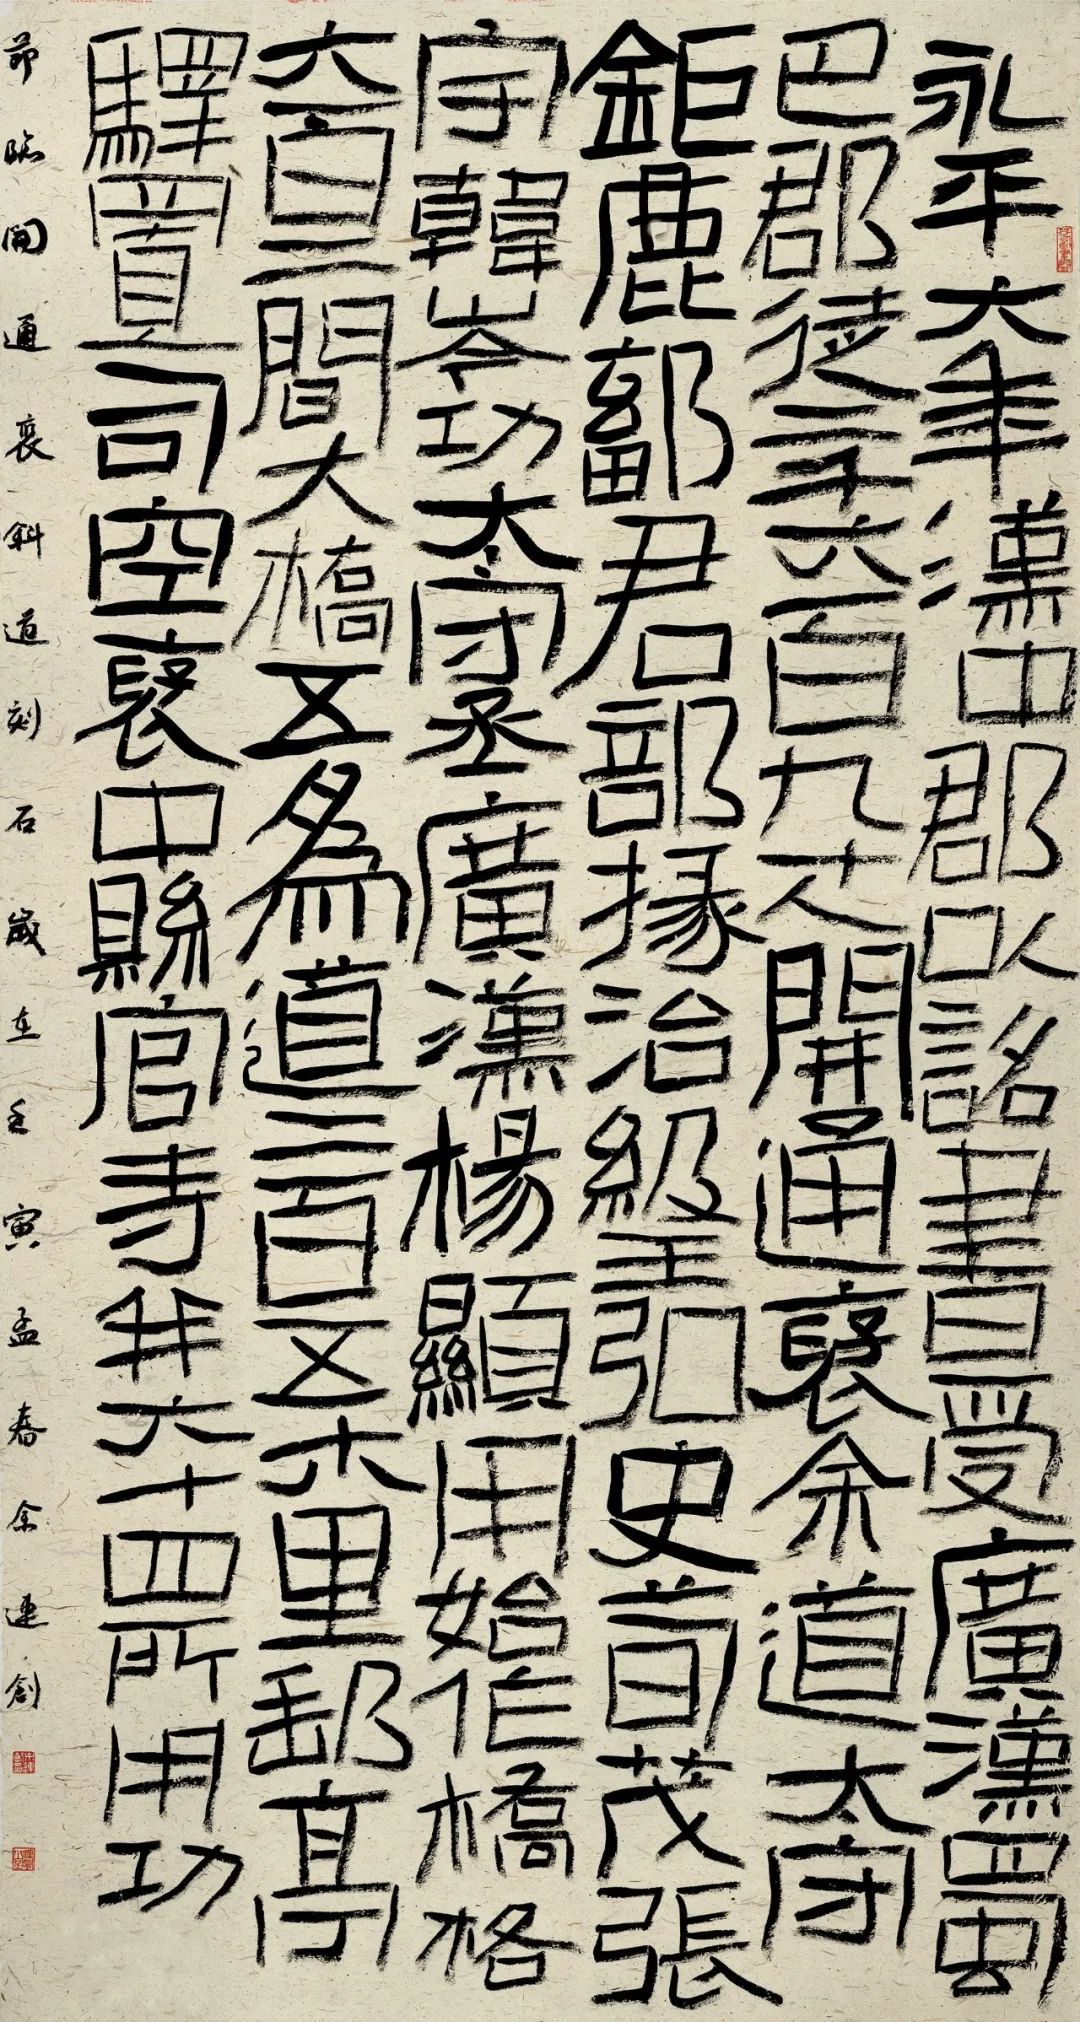 永平六年漢中郡以詔書受廣漢蜀
巴郡徒二千六百九十人開通褒余道太守
鉅鹿鄐君部掾治級王弘史荀茂張
宇韓岑功太守丞廣漢楊顯用始作橋格
六百三間大橋五為道二百五十八里郵亭
驛置司空褒中縣官寺并六十四所用功
節臨開通褒斜道刻石歲在壬寅孟春余連創